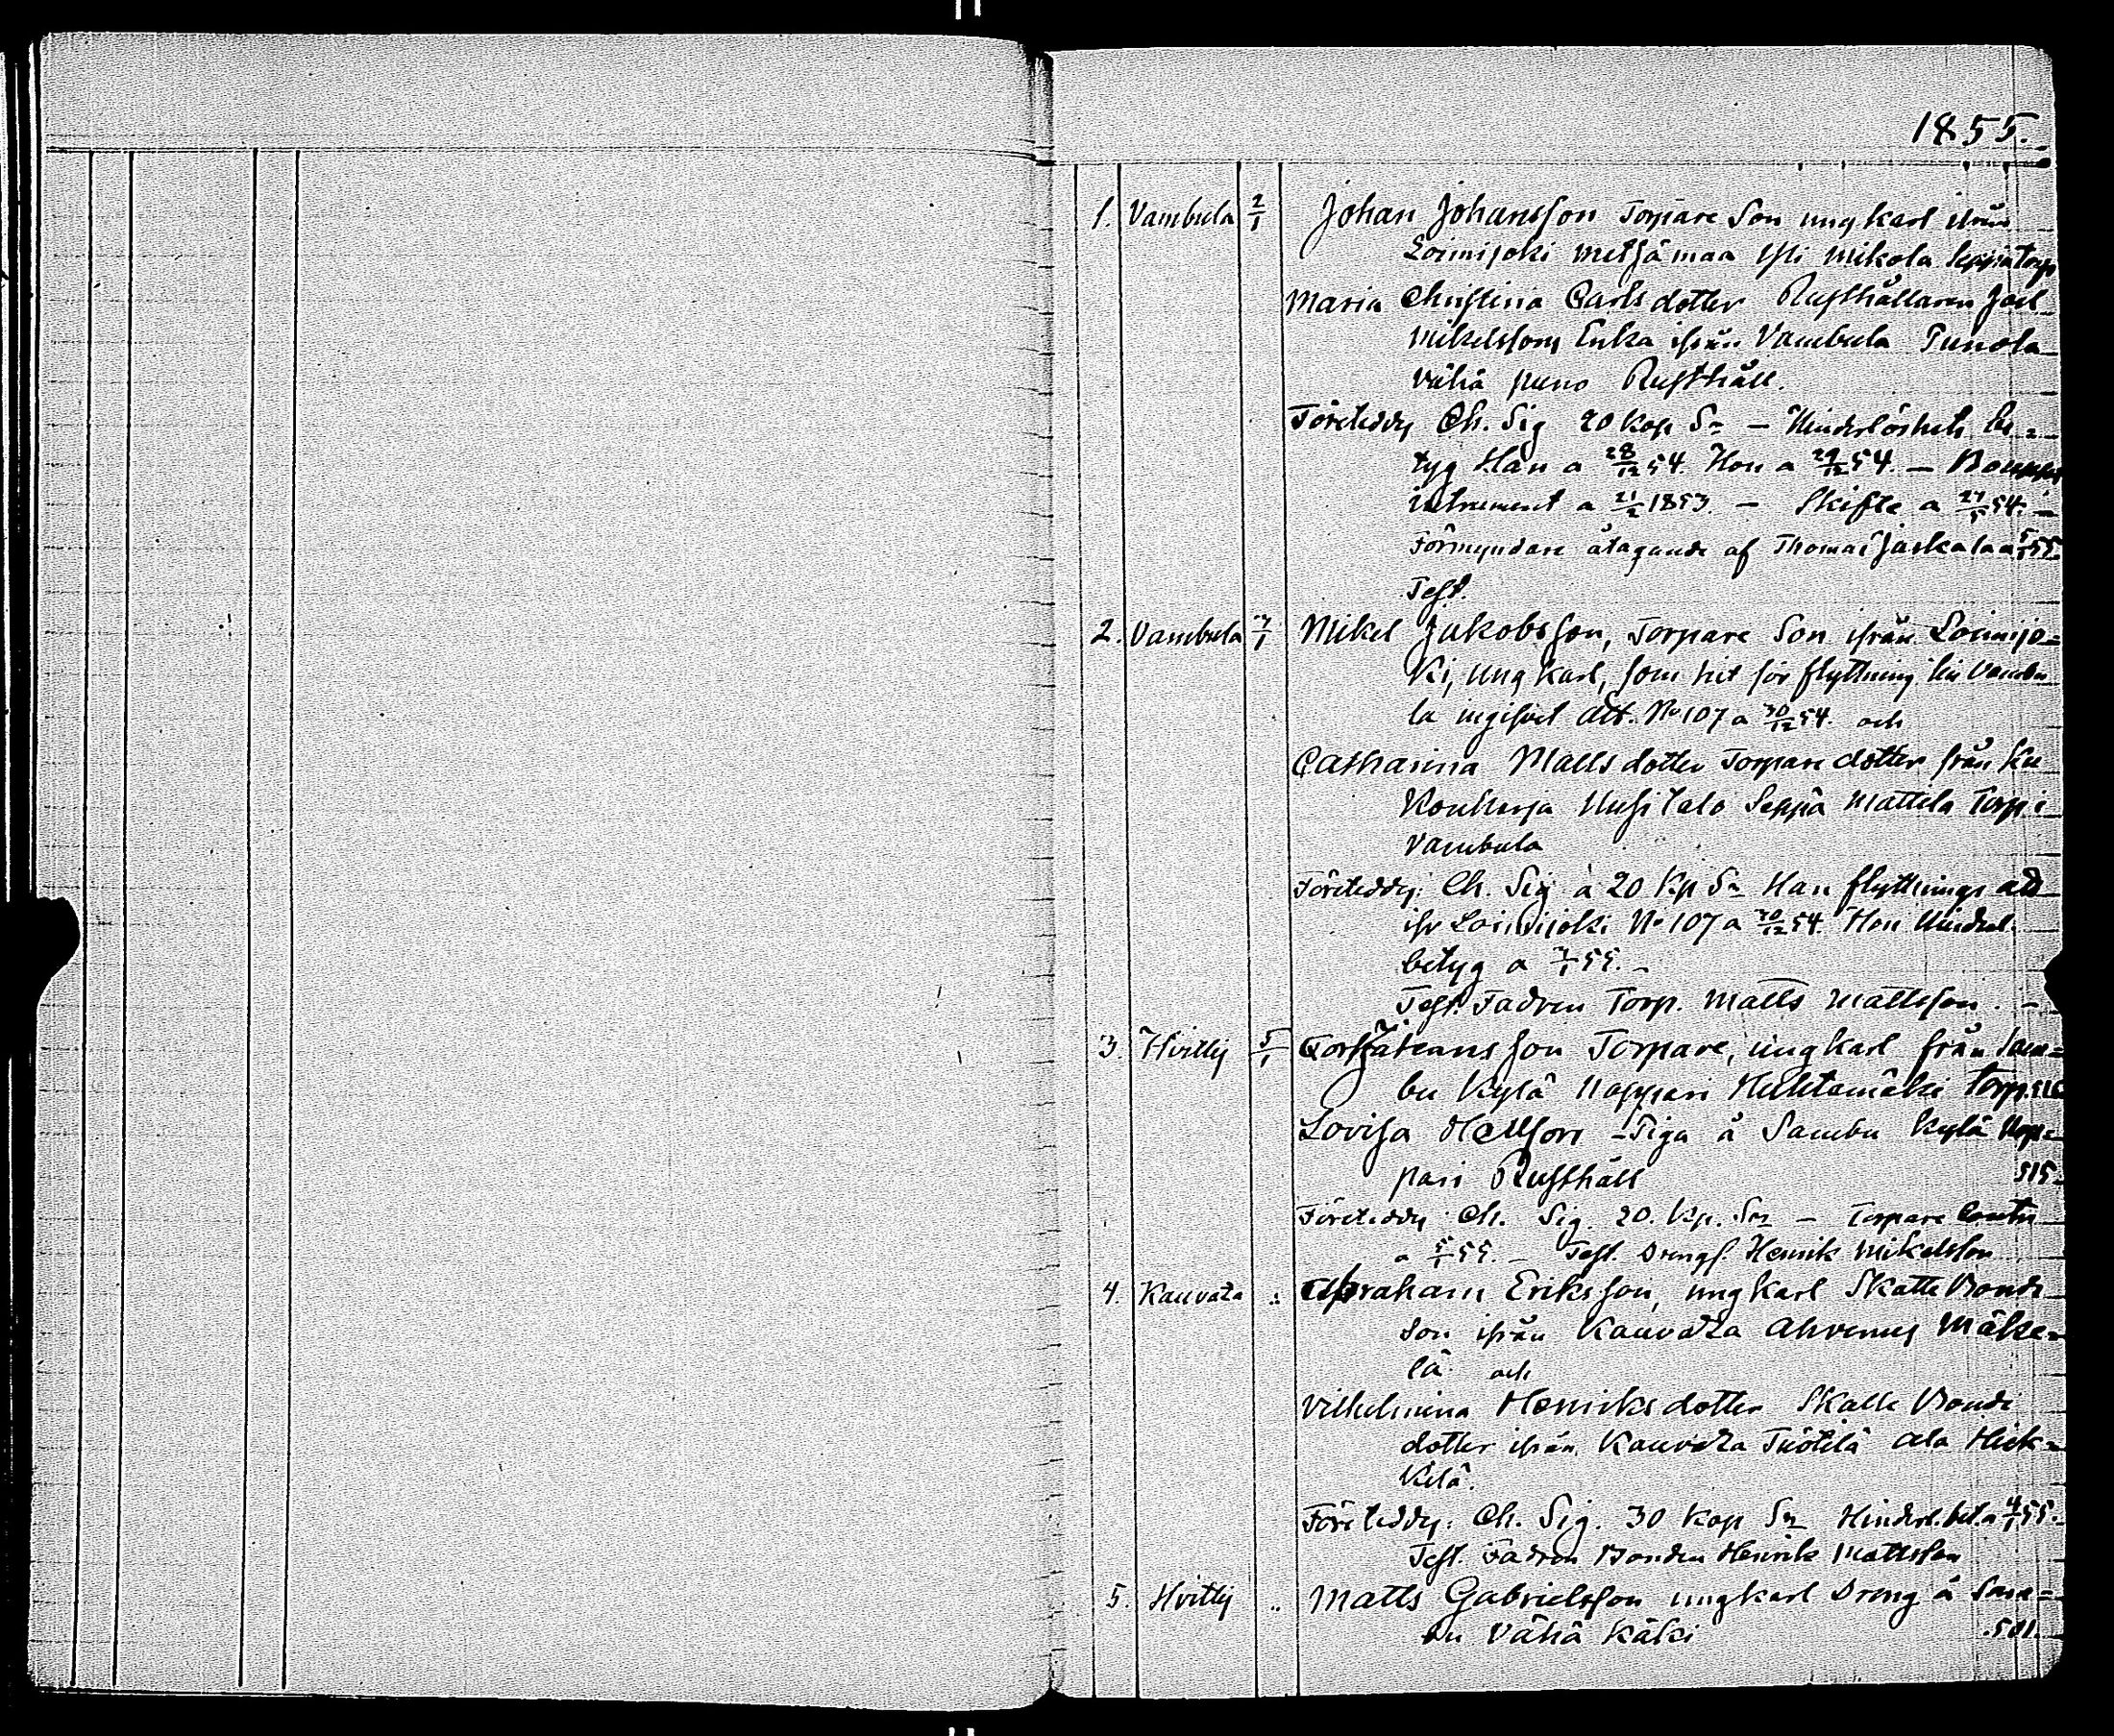 1855.
1. Vambula 2/1 Johan Johansson Torpare Son ungkarl ifrån
Loimijoki Metsämaa Yli Mikola Seppä torp
Maria Christina Carlsdotter Rusthållaren Joel
Mikelssons Enka ifrån Vambula Punola
Vähä puno Rusthåll.
Företeddes Ch. Sig 20 Kop Sr – Hinderlöshets be=
tyg Han a 28/12 54. Hon a 29/12 54. –
intrument a 21/2 1853. – Skifte a 27/1 54. –
Förmyndare åtagande af Thomas Jaskala a 5/1 55.
Test.
2. Vambula 7/1 Mikel Jakobsson, Torpare Son ifrån Loimijo=
ki, ungkarl, som hit för flyttning till Vambu
la ingifvit Att. No 107 a 30/12 54. och
Catharina Mattsdotter Torpare dotter från Ku
Konharja Uusitalo Seppä Mattila Torp i
Vambula
Företeddes: Ch. Sig à 20 Kp Sr Han flyttnings att
ifr Loimijoki No 107 a 30/12 54. Hon Hinderl.
betyg a 7/1 55. –
Test. Fadren Torp. Matts Mattsson. –
3. Hvittis 5/1 Johansson Torpare, ungkarl från Sam=
bu Kylä Noppari Huhtamäki Torp.
Lovisa Hellfors – Piga å Sambu Kylä Nop=
pari Rusthåll 515.
Företeddes Ch. Sig. 20. Kp. Sr – Torpare Contr
a 5/1 55. – Test. Drengs. Henrik Mikelsson
4. Kauvatza .. Abraham Eriksson, ungkarl Skatte Bonde
Son ifrån Kauvatza Ahvenus Mäke=
lä och
Vilhelmina Henriksdotter Skatte Bonde
dotter ifrån Kauvatza Tuötilä Ala Heik=
kilä.
Företeddes: Ch. Sig. 30 Kop Sr Hinderl. bet. a 4/1 55.
Test. Fadren Bonden Henrik Mattsson
5. Hvittis .. Matts Gabrielsson ungkarl Dreng å Sam=
bu Vähä Käki .501.